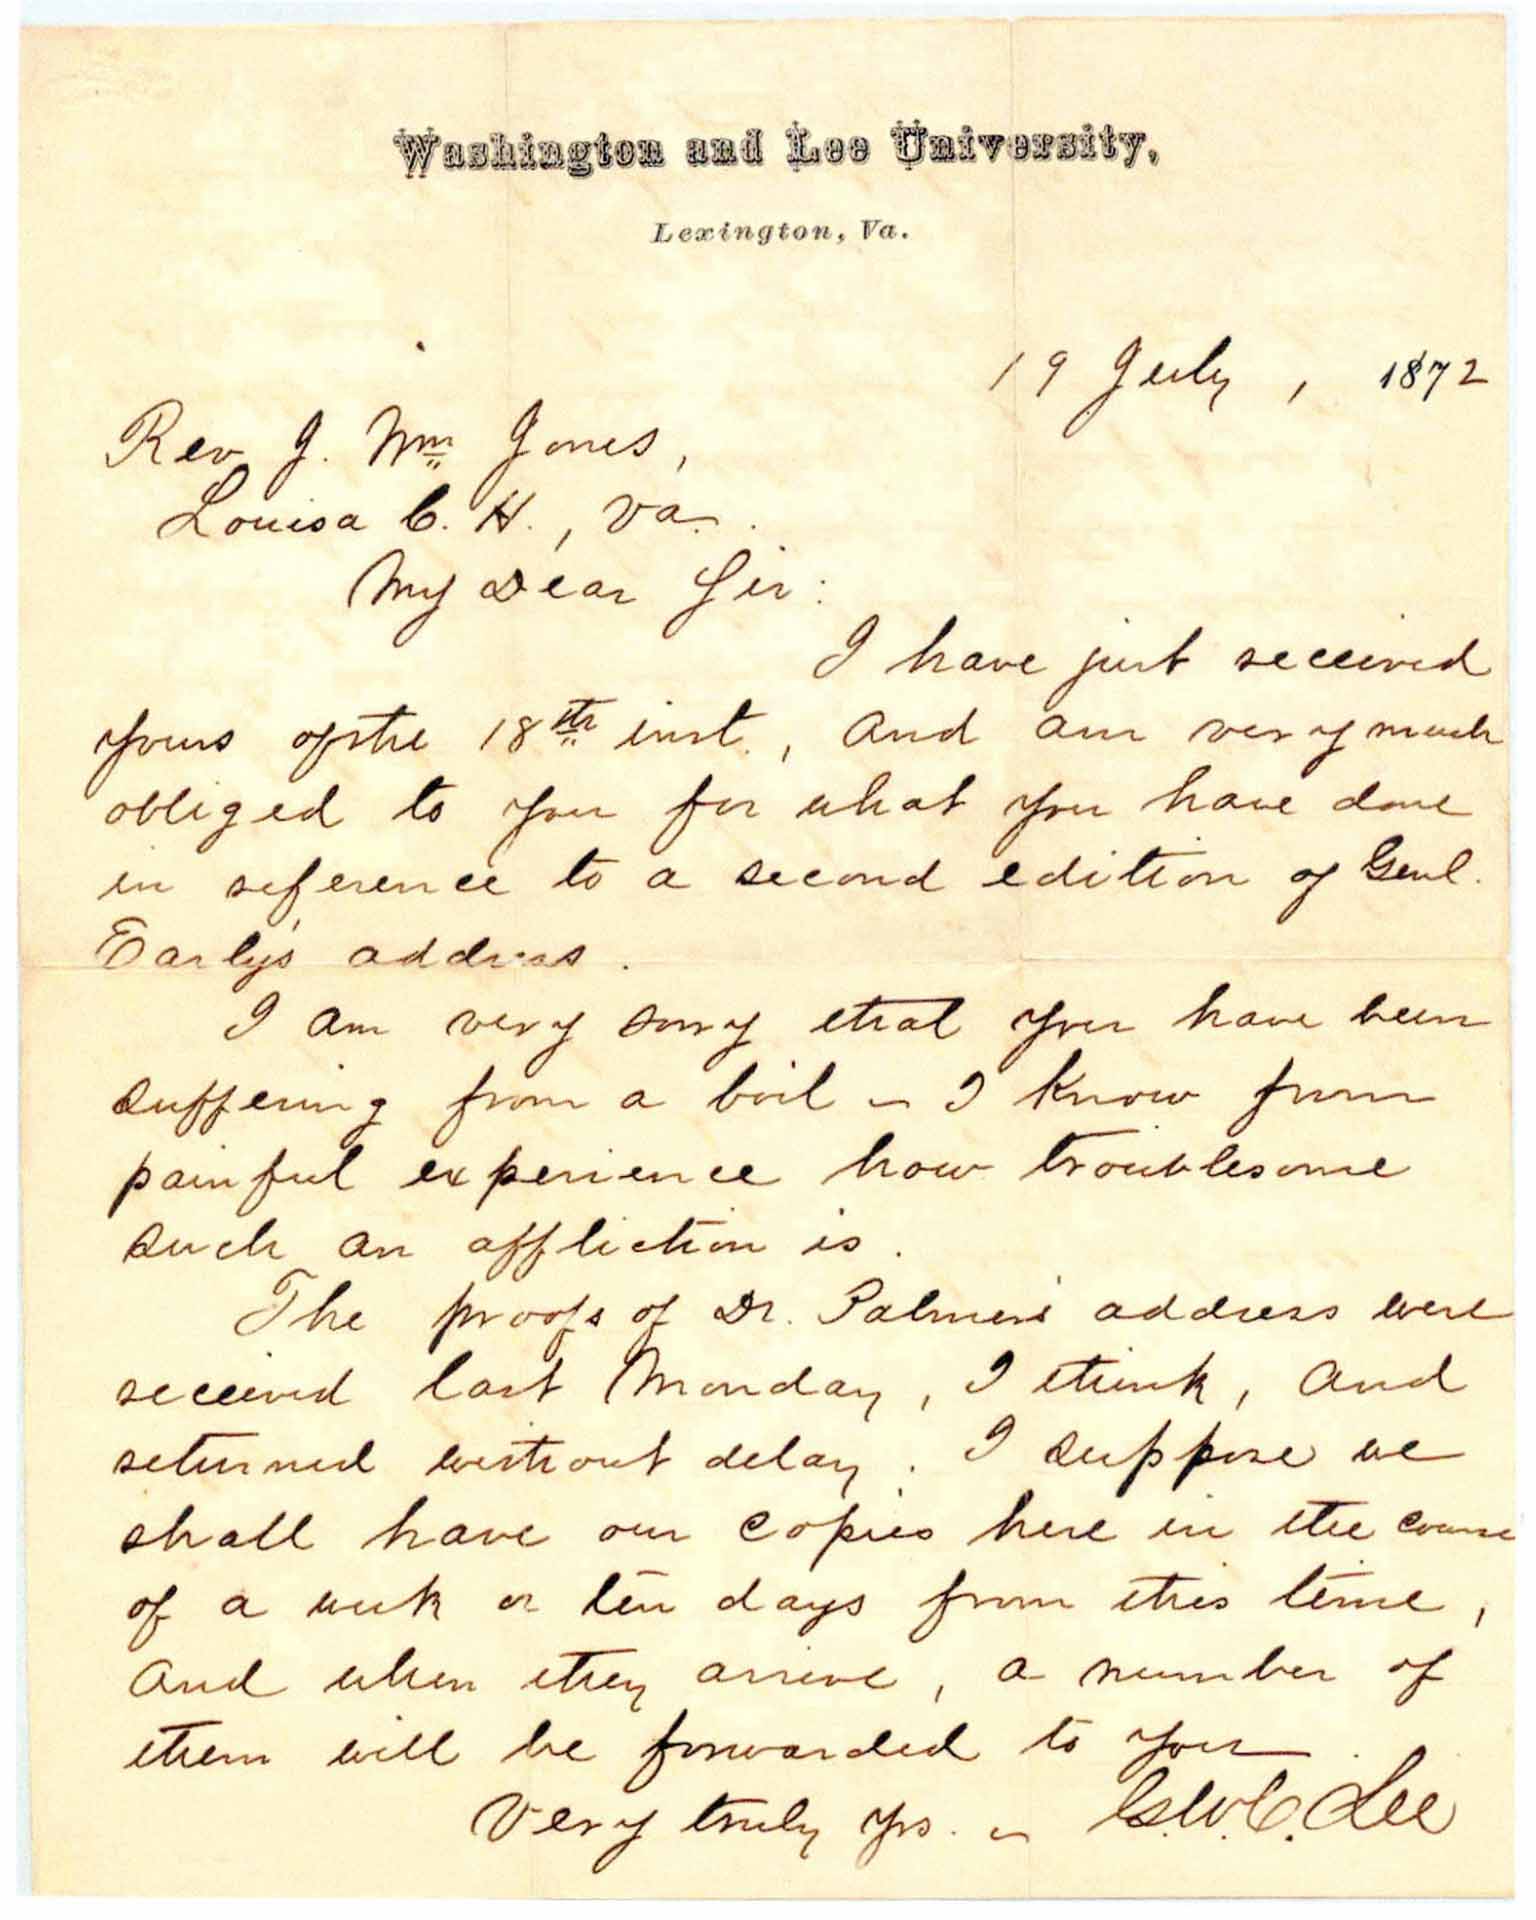 Washington and Lee University,
Lexington, Va.
19 July, 1872
Rev J. Wm Jones,
Louisa C. H., Va.
My Dear Sir:
I have just received
yours of the 18th inst., and am very much
obliged to you for what you have done
in reference to a second edition of Genl.
Early's address.
I am very sorry that you have been
suffering from a boil – I know from
painful experience how troublesome
such an affliction is.
The proofs of Dr. Palmer's address were
received last Monday, I think, and
returned without delay. I suppose we
shall have our copies here in the course
of a week or ten days from this time,
and when they arrive, a number of
them will be forwarded to you.
Very truly yrs. – G.W.C. Lee